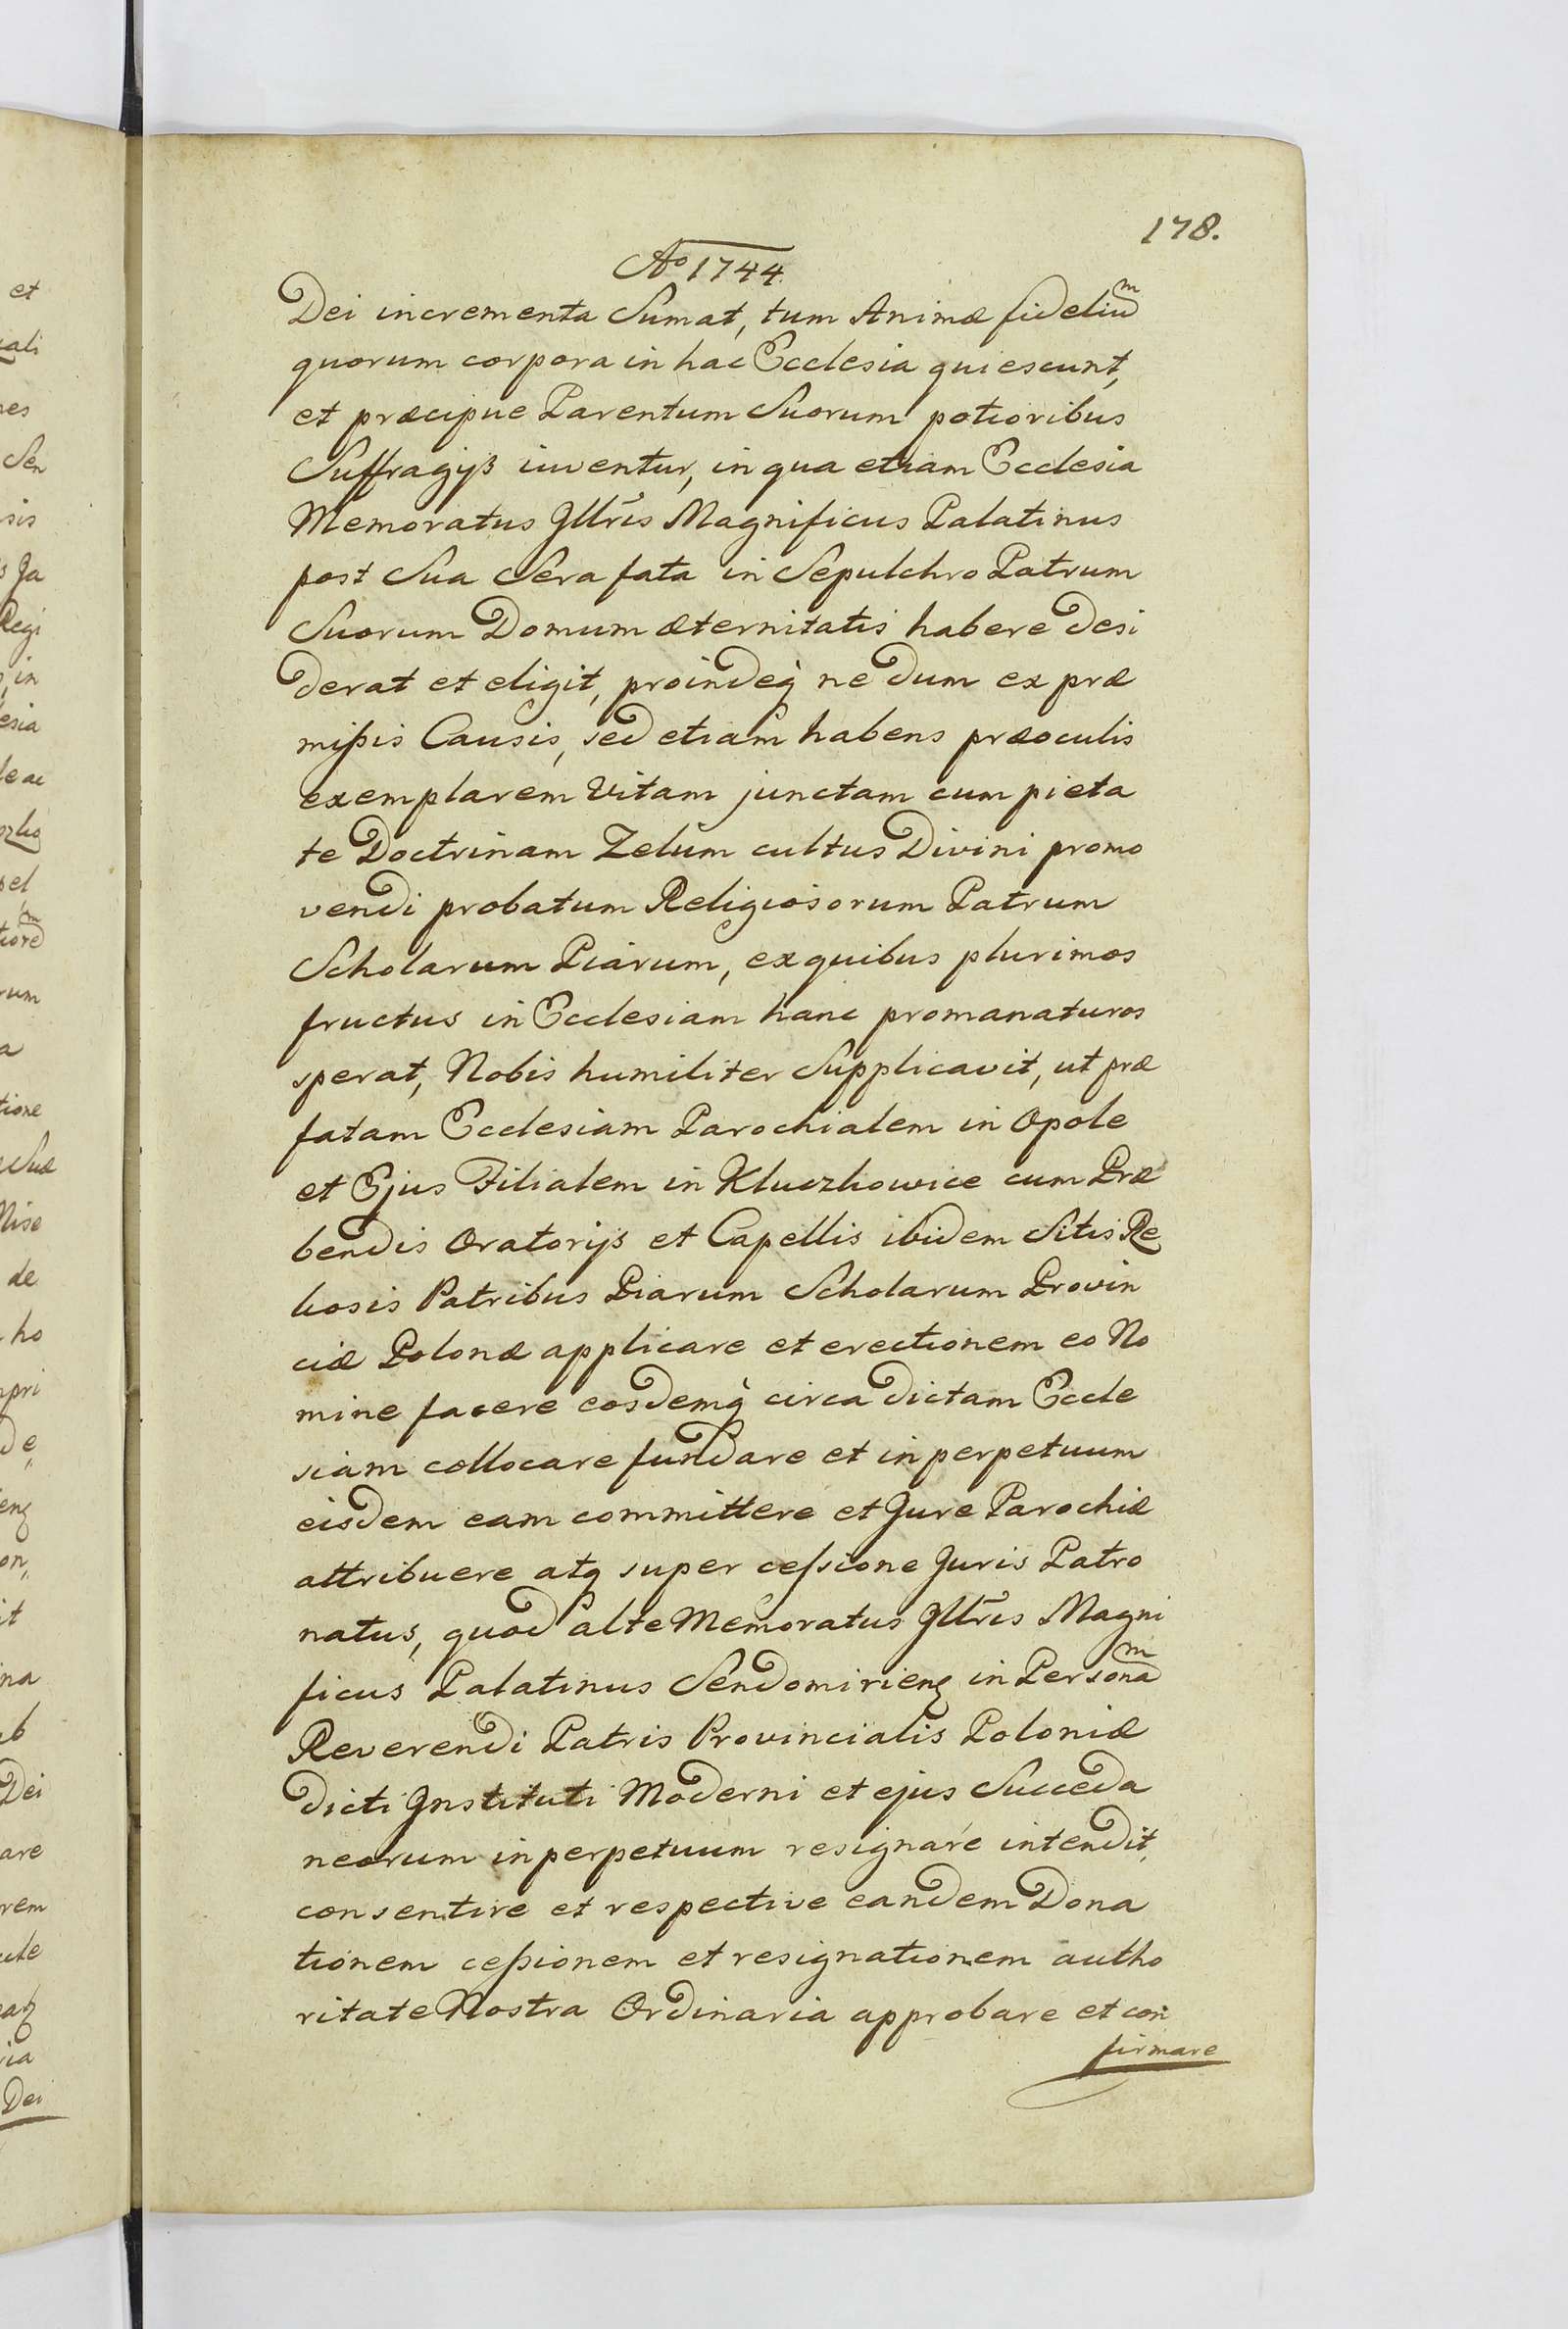 178.
Ao 1744.
Dei incrementa Sumat, tum Animæ fideliu^m
quorum corpora in hac Ecclesia quiescunt,
et præcipue Parentum Suorum potioribus
Suffragijs iuventur, in qua etiam Ecclesia
Memoratus Jllr̃is Magnificus Palatinus
post Sua Sera fata in Sepulchro Patrum
Suorum Domum æternitatis habere desi
derat et eligit, proindeq̀ ne dum ex præ
mißis Causis, sed etiam habens præoculis
exemplarem Vitam junctam cum pieta
te Doctrinam Zelum cultus Divini promo
vendi probatum Religiosorum Patrum
Scholarum Piarum, ex quibus plurimos
fructus in Ecclesiam hanc promanaturos
sperat, Nobis humiliter Supplicavit, ut præ
fatam Ecclesiam Parochialem in Opole
et Ejus Filialem in Kluczkowice cum Præ
bendis Oratorijs et Capellis ibidem Sitis Re
liosis Patribus Piarum Scholarum Provin
ciæ Polonæ applicare et erectionem eo No
mine facere eosdemq̀ circa dictam Eccle
siam collocare fundare et in perpetuum
eisdem eam committere et Jure Parochiæ
attribuere atq super ceſsione Juris Patro
natus, quod alte Memoratus Jllr̃is Magni
ficus Palatinus Sendomirienꝫ in Persona^m
Reverendi Patris Provincialis Poloniæ
dicti Jnstituti Moderni et ejus Succeda
neorum in perpetuum resignare intendit,
consentire et respective eandem Dona
tionem ceßionem et resignationem autho
ritate Nostra Ordinaria approbare et con
firmare